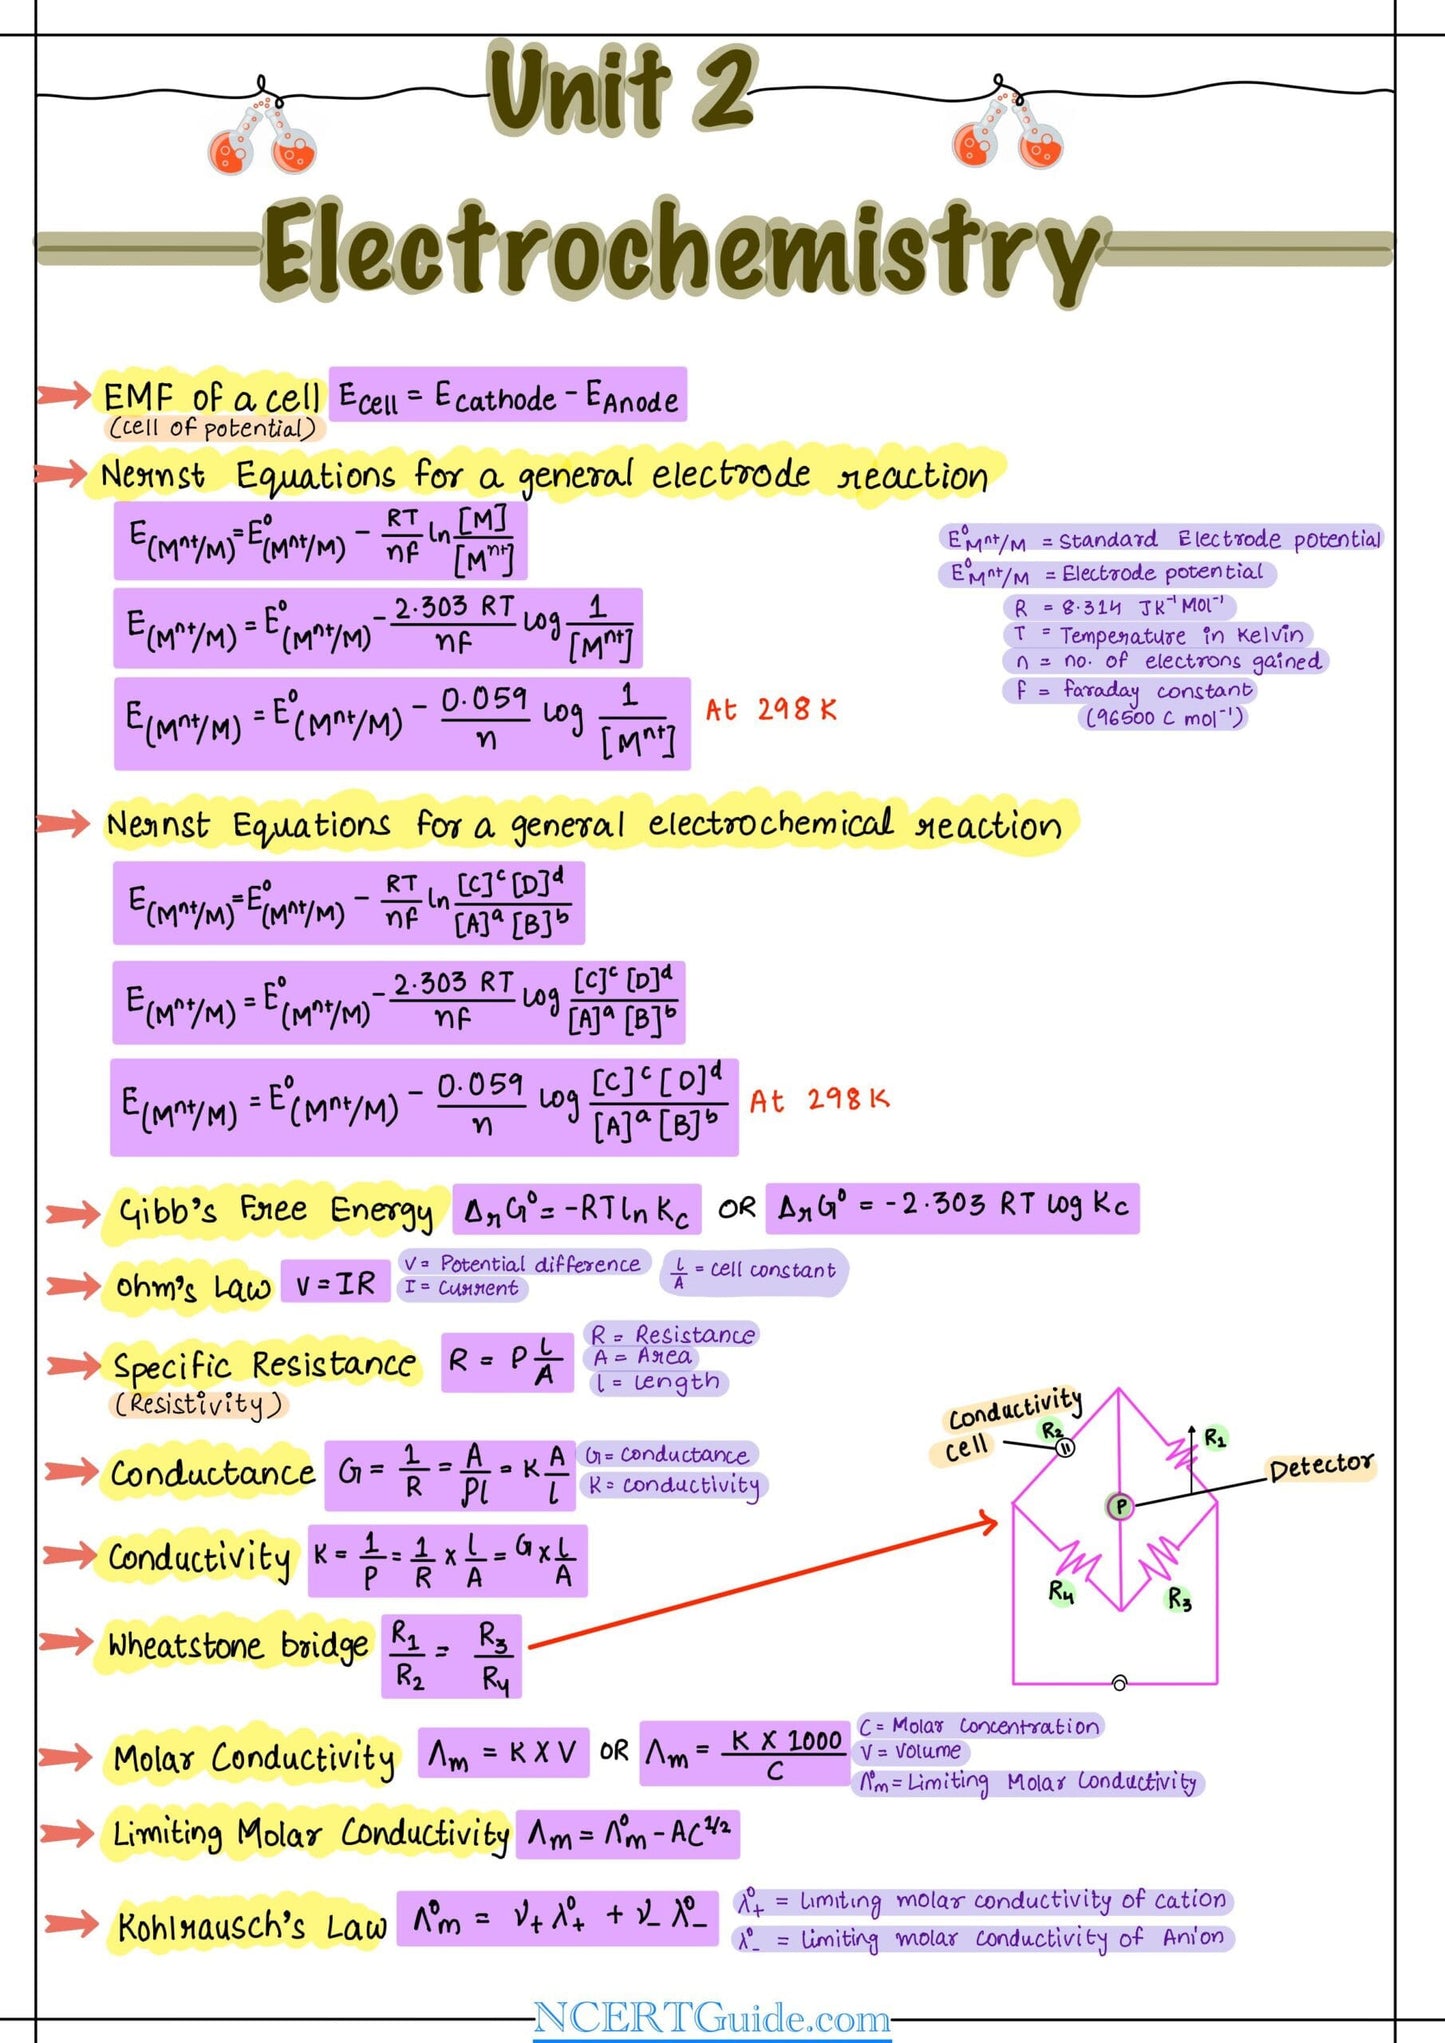 Unit 2
Electrochemistry
EMF of a cell E Cell = E Cathode - E Anode
(cell of potential)
Nernst Equations for a general electrode reaction
E(Mⁿ⁺/M) = E⁰(Mⁿ⁺/M) - RT/nF ln [M]/[Mⁿ⁺]
E⁰Mⁿ⁺/M = Standard Electrode potential
E⁰Mⁿ⁺/M = Electrode potential
R = 8.314 JK⁻¹ Mol⁻¹
T = Temperature in Kelvin
n = no. of electrons gained
F = faraday constant
(96500 C mol⁻¹)
E(Mⁿ⁺/M) = E⁰(Mⁿ⁺/M) - 2.303 RT/nF log 1/[Mⁿ⁺]
E(Mⁿ⁺/M) = E⁰(Mⁿ⁺/M) - 0.059/n log 1/[Mⁿ⁺] At 298 K
Nernst Equations for a general electrochemical reaction
E(Mⁿ⁺/M) = E⁰(Mⁿ⁺/M) - RT/nF ln [C]ᶜ [D]ᵈ/[A]ᵃ [B]ᵇ
E(Mⁿ⁺/M) = E⁰(Mⁿ⁺/M) - 2.303 RT/nF log [C]ᶜ [D]ᵈ/[A]ᵃ [B]ᵇ
E(Mⁿ⁺/M) = E⁰(Mⁿ⁺/M) - 0.059/n log [C]ᶜ [D]ᵈ/[A]ᵃ [B]ᵇ At 298 K
Gibb's Free Energy ΔrG⁰ = -RT ln Kc OR ΔrG⁰ = -2.303 RT log Kc
Ohm's Law V = IR
V = Potential difference
I = Current
l/A = cell constant
Specific Resistance R = P l/A
(Resistivity)
R = Resistance
A = Area
l = Length
Conductance G = 1/R = A/Pl = K A/l
G = Conductance
K = conductivity
Conductivity K = 1/P = 1/R x l/A = G x l/A
Wheatstone bridge R₁/R₂ = R₃/R₄
Conductivity
cell
R₂
R₁
Detector
P
R₄
R₃
Molar Conductivity Λm = K X V OR Λm = K X 1000/C
C = Molar Concentration
V = Volume
Λ⁰m = Limiting Molar Conductivity
Limiting Molar Conductivity Λm = Λ⁰m - AC¹/²
Kohlrausch's Law Λ⁰m = ν₊ λ⁰₊ + ν₋ λ⁰₋
λ⁰₊ = Limiting molar conductivity of cation
λ⁰₋ = Limiting molar conductivity of Anion
NCERTGuide.com